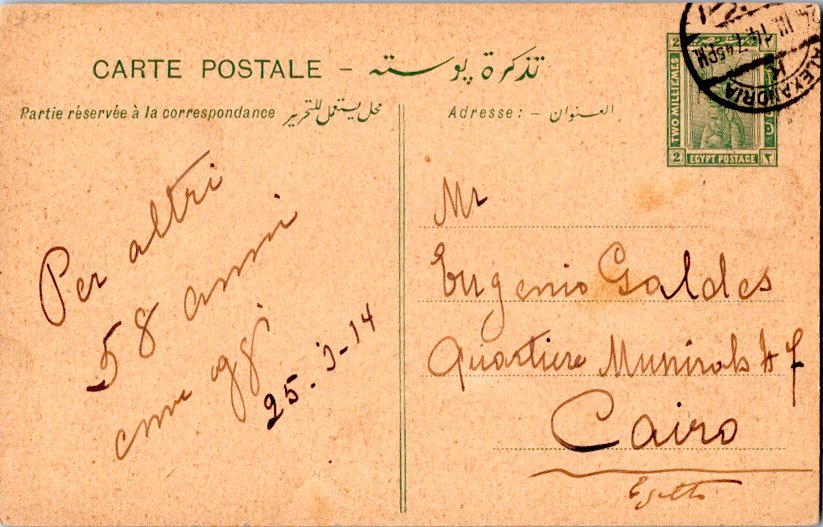 CARTE POSTALE – تذكرة پوسته
Partie réservée à la correspondance محل يستعمل للتحرير
Adresse: – العنوان
2
TWO MILLIEMES
2 EGYPT POSTAGE ٢
ALEXANDRIA
24. III. 14. 7 45PM
K
Per altri
58 anni
come oggi
25-3-14
Mr
Eugenio Galdes
Quartiere
Cairo
Egitto